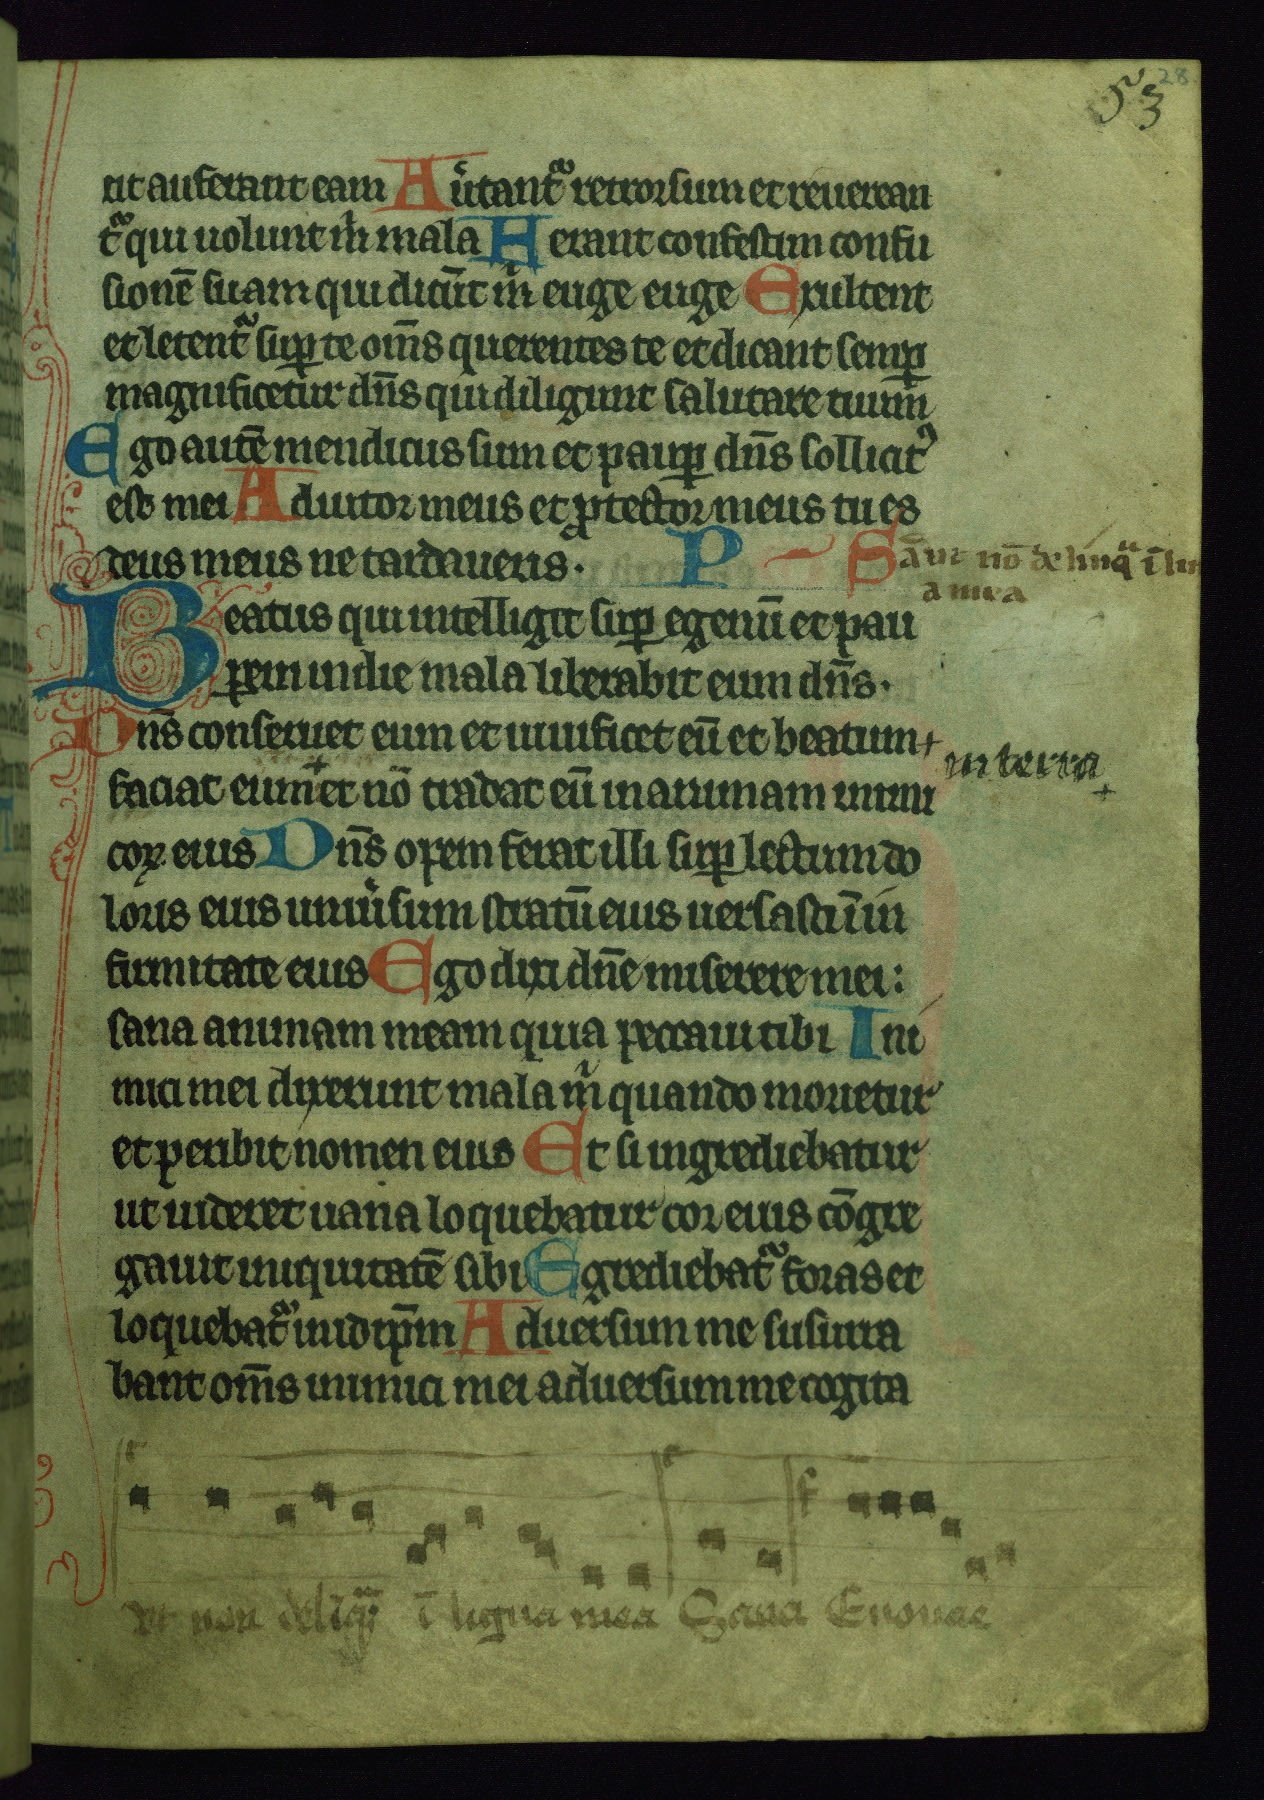 28
53
ut auferant eam Auͥtantᷓ retrorsum et reuerean
tᷓ qui uolunt m̍ mala Herant confestim confu
sionē suam qui dicūt m̍ euge euge Exultent
et letentᷓ suꝑ te om̄s querentes te et dicant semꝑ
magnificetur dn̄s qui diligunt salutare tuum
Ego autē mendicus sum et pauꝑ dn̄s sollicitꝰ
est mei Adiutor meus et ꝓtector meus tu es
deus meus ne tardaueris. P S āut nō delinqᷓ ī lin
a mea
Beatus qui intelligit suꝑ egenū et pau
ꝑem in die mala liberabit eum dn̄s.
Dn̄s conseruet eum et uiuificet eū et beatum +
in terra +
faciat eum + et nō tradat eū in animam inimi
coꝝ eius Dn̄s opem ferat illi suꝑ lectum do
loris eius uniu̍sum stratū eius uersasti ī in
firmitate eius Ego dixi dn̄e miserere mei:
sana animam meam quia peccaui tibi Ini
mici mei dixerunt mala m̍ quando morietur
et peribit nomen eius Et si ingrediebatur
ut uideret uana loquebatur cor eius cōgre
gauit iniquitatē sibi Egrediebatᷓ foras et
loquebatᷓ in idip̄m Aduersum me susurra
bant om̄s inimici mei aduersum me cogita
Vt non delīqᷓ ī ligua mea Sana Euouae